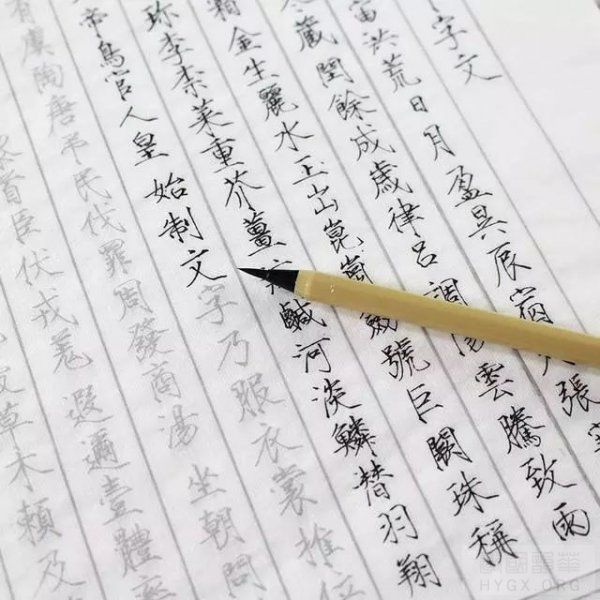 字文
宙洪荒日月盈昃辰宿張
藏閏餘成歲律呂調陽雲騰致雨
霜金生麗水玉出崑崗劍號巨闕珠稱
珍李柰菜重芥薑海鹹河淡鱗潛羽翔
帝鳥官人皇始制文字乃服衣裳推位
有虞陶唐弔民伐罪周發商湯坐朝問
首臣伏戎羌遐邇壹體率
草木賴及
HYGX.ORG